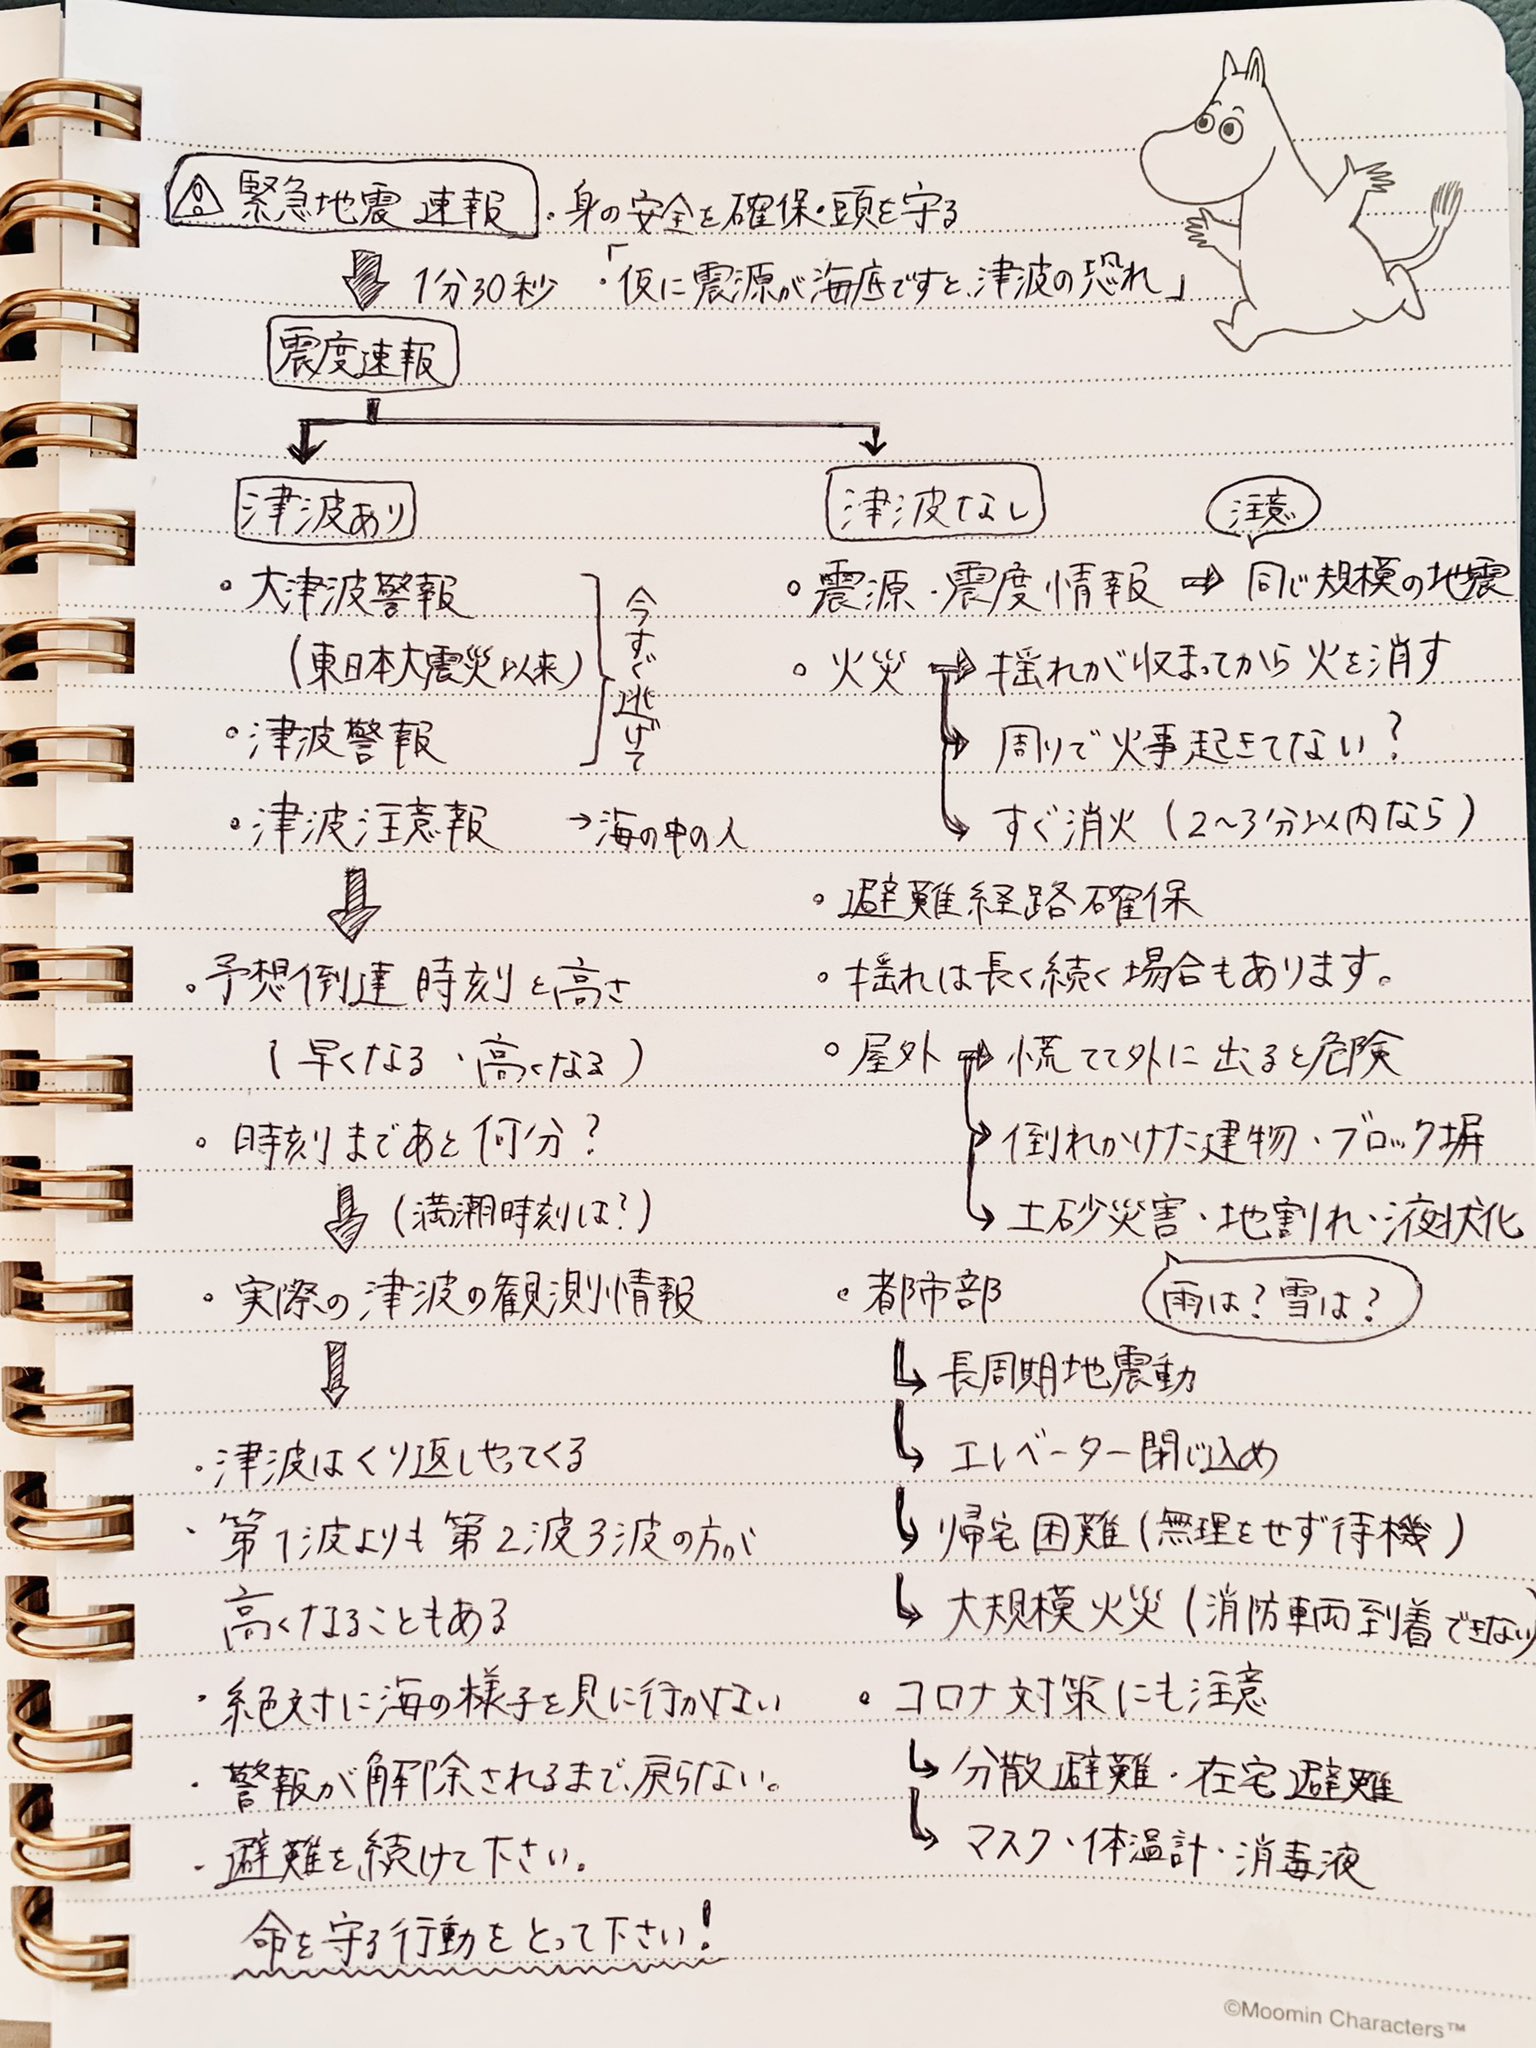 ⚠ 緊急地震速報 ・身の安全を確保・頭を守る
⇩ 1分30秒 ・「仮に震源が海底ですと、津波の恐れ」
震度速報
津波あり
・大津波警報
(東日本大震災以来)
・津波警報
今すぐ逃げて
・津波注意報 →海の中の人
・予想到達時刻と高さ
(早くなる・高くなる)
・時刻まであと何分?
(満潮時刻は?)
・実際の津波の観測情報
・津波はくり返しやってくる
・第1波よりも第2波3波の方が
高くなることもある
・絶対に海の様子を見に行かない
・警報が解除されるまで、戻らない。
・避難を続けて下さい。
命を守る行動をとって下さい!
津波なし
注意
・震源・震度情報 ⇨ 同じ規模の地震
・火災 ⇨ 揺れが収まってから火を消す
→ 周りで火事起きてない?
→ すぐ消火(2〜3分以内なら)
・避難経路確保
・揺れは長く続く場合もあります。
・屋外 ⇨ 慌てて外に出ると危険
→ 倒れかけた建物・ブロック塀
→ 土砂災害・地割れ・液状化
雨は?雪は?
・都市部
↳ 長周期地震動
↳ エレベーター閉じ込め
↳ 帰宅困難(無理をせず待機)
↳ 大規模火災(消防車両到着できない)
・コロナ対策にも注意
↳ 分散避難・在宅避難
↳ マスク・体温計・消毒液
©Moomin Characters™